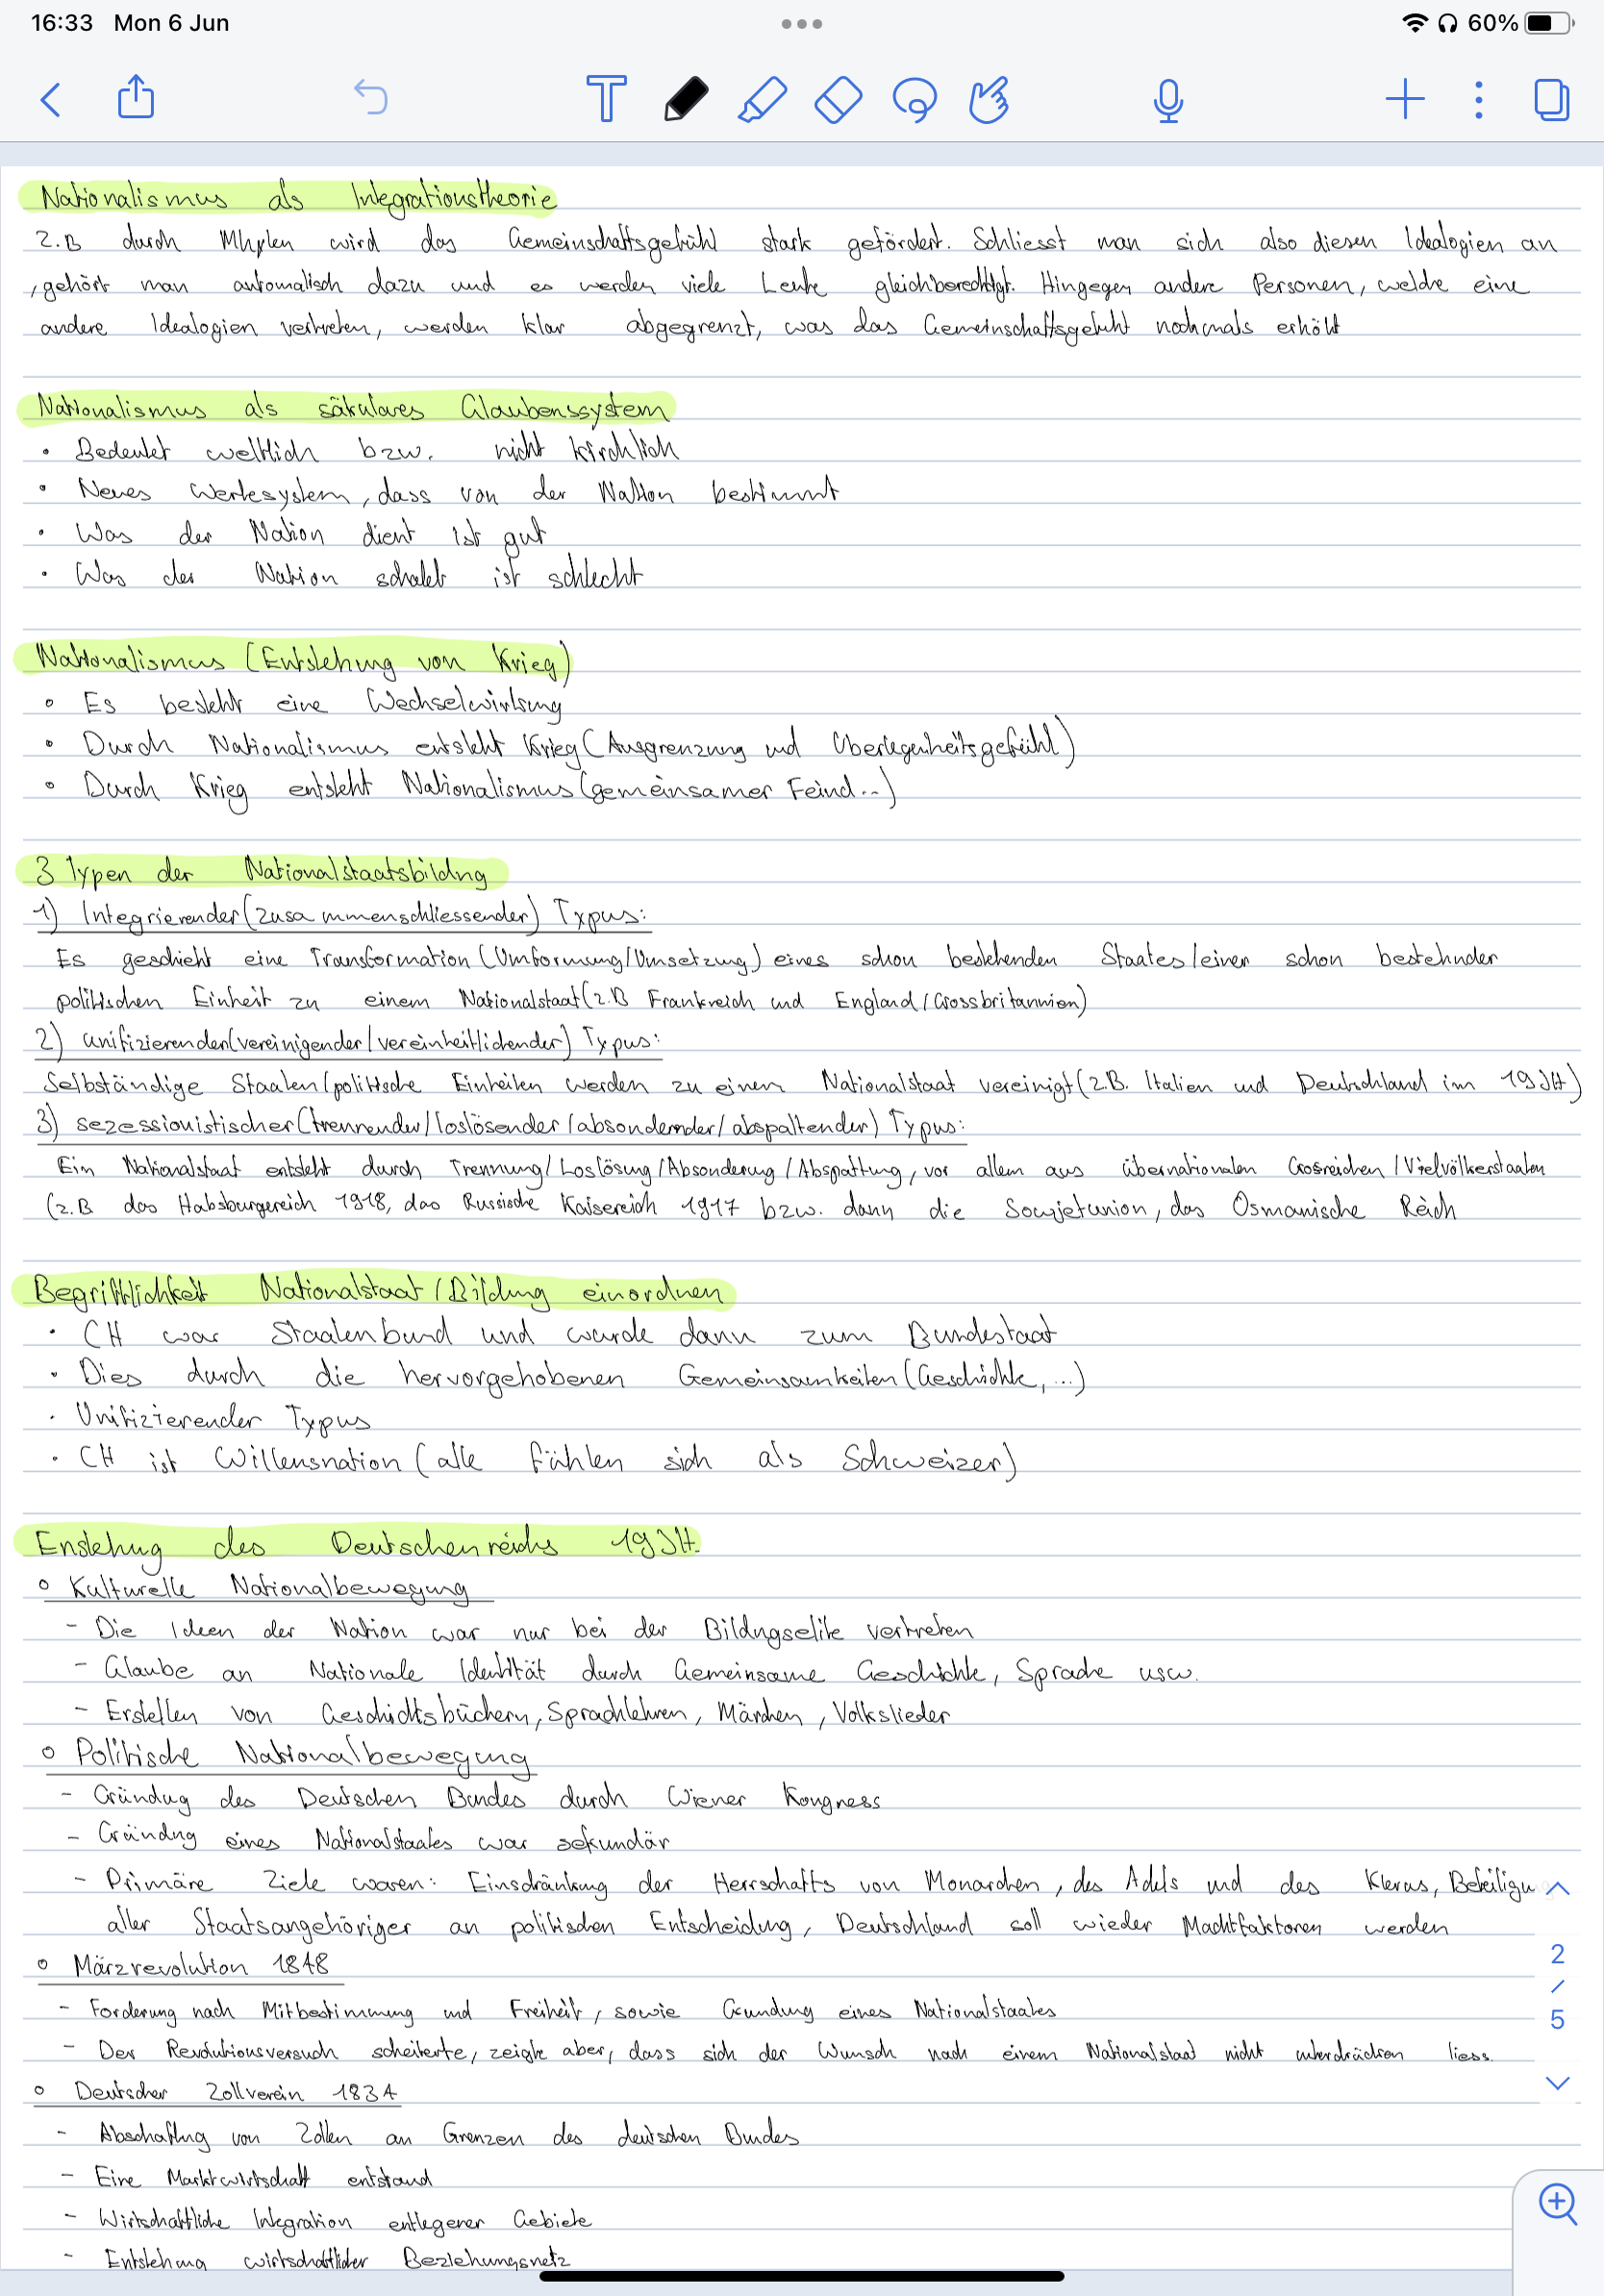 16:33 Mon 6 Jun
60%
Nationalismus als Integrationstheorie
z.B durch Mhylen wird das Gemeinschaftsgefühl stark gefördert. Schliesst man sich also diesen Idealogien an
, gehört man automatisch dazu und es werden viele Leute gleichberechtigt. Hingegen andere Personen, welche eine
andere Idealogien vertreten, werden klar abgegrenzt, was das Gemeinschaftsgefühl nochmals erhöht
Nationalismus als säkulares Glaubenssystem
• Bedeutet weltlich bzw. nicht kirchlich
• Neues Wertesystem, dass von der Nation bestimmt
• Was der Nation dient ist gut
• Was der Nation schadet ist schlecht
Nationalismus (Entstehung von Krieg)
• Es besteht eine Wechselwirkung
• Durch Nationalismus entsteht Krieg (Ausgrenzung und Überlegenheitsgefühl)
• Durch Krieg entsteht Nationalismus (gemeinsamer Feind..)
3 Typen der Nationalstaatsbildng
1) Integrierender (zusammenschliessender) Typus:
Es geschieht eine Transformation (Umformung/Umsetzung) eines schon bestehenden Staates/einer schon bestehnder
politischen Einheit zu einem Nationalstaat (z.B Frankreich und England/Grossbritannien)
2) unifizierender (vereinigender/vereinheitlichender) Typus:
Selbständige Staaten/politische Einheiten werden zu einem Nationalstaat vereinigt (z.B. Italien und Deutschland im 19JH)
3) sezessionistischer (trennender/loslösender/absondernder/abspaltender) Typus:
Ein Nationalstaat entsteht durch Trennung/Loslösung/Absonderung/Abspaltung, vor allem aus übernationalen Grosreichen/Vielvölkerstaaten
(z.B das Habsburgereich 1918, das Russische Kaisereich 1917 bzw. dann die Sowjetunion, das Osmanische Reich
Begrifflichkeit Nationalstaat/Bildung einordnen
• CH war Staatenbund und wurde dann zum Bundestaat
• Dies durch die hervorgehobenen Gemeinsamkeiten (Geschichte, ...)
• Unifizierender Typus
• CH ist Willensnation (alle fühlen sich als Schweizer)
Enstehug des Deutschenreichs 19JH.
° Kulturelle Nationalbewegung
- Die Ideen der Nation war nur bei der Bildngselite vertreten
- Glaube an Nationale Identität durch Gemeinsame Geschichte, Sprache usw.
- Erstellen von Geschichtsbüchern, Sprachlehren, Märchen, Volkslieder
° Politische Nationalbewegung
- Gründug des Deutschen Bundes durch Wiener Kongress
- Gründng eines Nationalstaates war sekundär
- Primäre Ziele waren: Einschränkung der Herrschafts von Monarchen, des Adels und des Klerus, Beteiligu
aller Staatsangehöriger an politischen Entscheidung, Deutschland soll wieder Machtfaktoren werden
° Märzrevolution 1848
- Forderung nach Mitbestimmung und Freiheit, sowie Grundung eines Nationalstaates
- Der Revolutionsversuch scheiterte, zeigte aber, dass sich der Wunsch nach einem Nationalstaat nicht unterdrücken liess.
° Deutscher Zollverein 1834
- Abschaffng von Zöllen an Grenzen des deutschen Bundes
- Eine Marktwirtschaft entstand
- Wirtschaftliche Integration entlegener Gebiete
- Entstehung wirtschaftlicher Beziehungsnetz
2
/
5